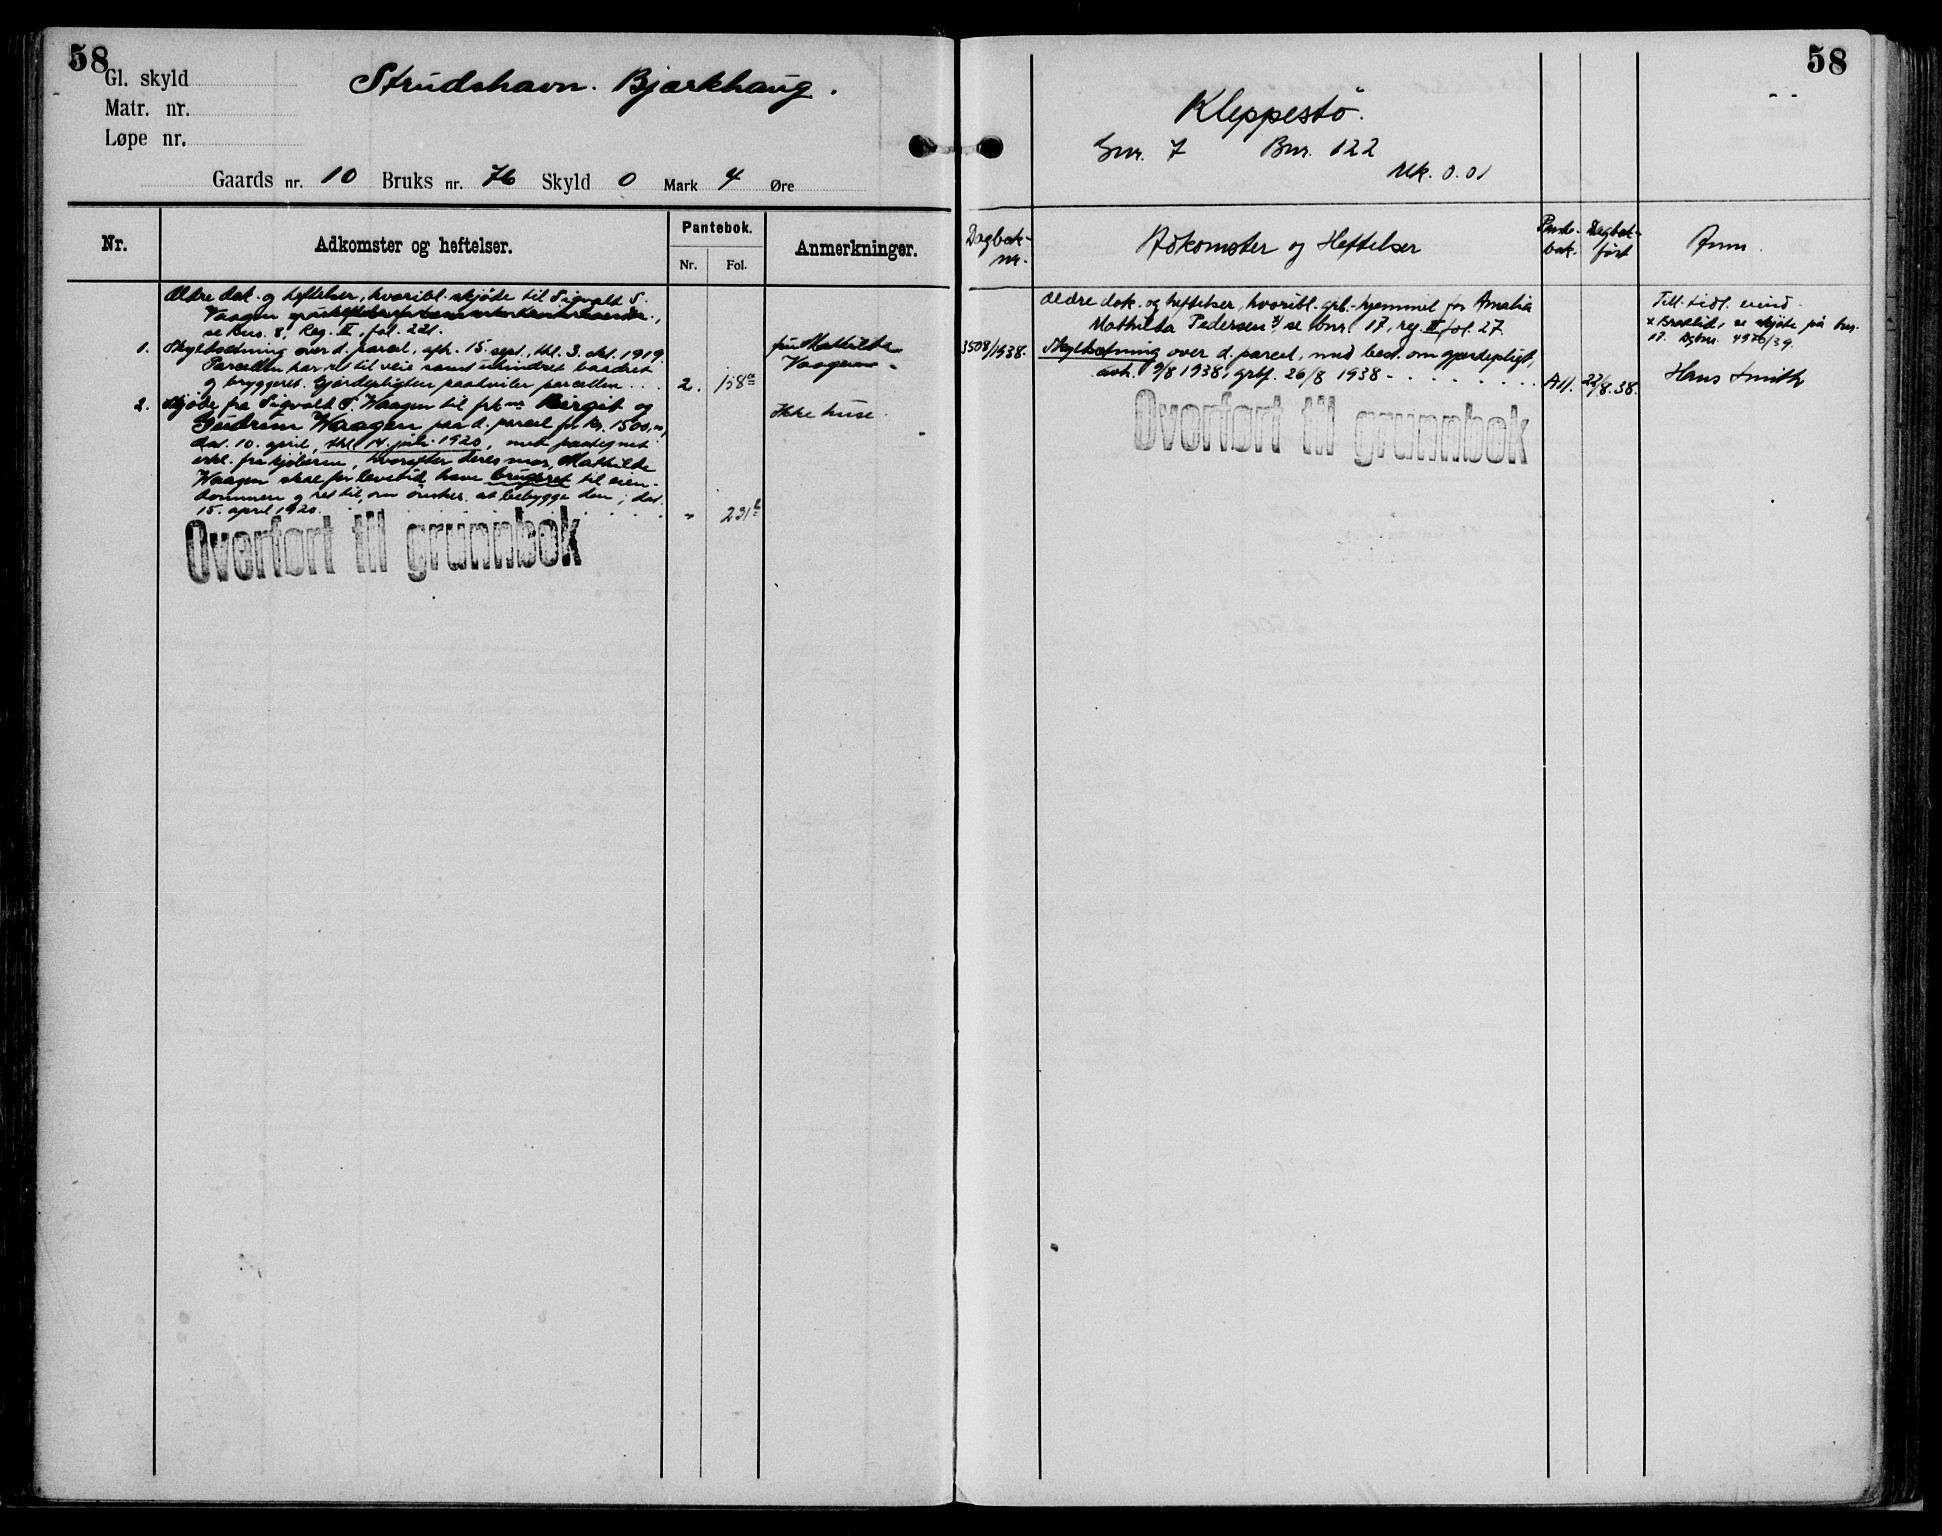 58
Gl. skyld
Matr. nr.
Løpe nr.
Strudshavn. Bjarkhaug.
Gaards nr. 10 Bruks nr. 76 Skyld 0 Mark 4 Øre
Nr.
Adkomster og heftelser.
Pantebok.
Nr. Fol.
Anmerkninger.
Ældre dok. og heftelser, hvoribl. skjöte til Sigvald S.
Vaagen
se Bns. 8, Reg. II, fol. 221.
1. Skyldsetning over d. parcel, afh. 15. sept., thl. 3. okt. 1919.
Parcellen har ret til veie samt uhindret baadret
og bryggeret. Gjerdepligten paahviler parcellen. . . 2. 158a
fru Mathilde
Vaagen.
2. Skjöte fra Sigvald S. Waagen til frk.ne Birgit og
Gudrun Waagen paa d. parcel for kr. 1500,00,
dat. 10. april, thl. 14. juli 1920, med paategnet
erkl. fra kjöberne, hvorefter deres mor, Mathilde
Waagen skal for levetid have brugsret til eien-
dommen og ret til, om önskes, at bebygge den; dat.
15. april 1920. . . . . . . . . " 221b
Ikke huse.
Overført til grunnbok
58
Kleppestö.
Gnr. 7 Bnr. 122
Mk. 0.01
Dagbok-
nr.
Adkomster og Heftelser
Pante-
bok.
Dagbok-
ført
Anm.
Ældre dok. og heftelser, hvoribl. grb.-hjemmel for Amalia
Mathilda Pedersen x/ se bnr. 17, reg. II fol. 27.
3508/1938. Skyldsetning over d. parcel, med best. om gjerdepligt,
avh. 9/8 1938, grbf. 26/8 1938 - . . . . . . A11. 22/8.38.
Till. tidl. eiend.
x Braklid, se skjöte på bnr.
17. Dgbnr. 4976/39.
Hans Smith
Overført til grunnbok